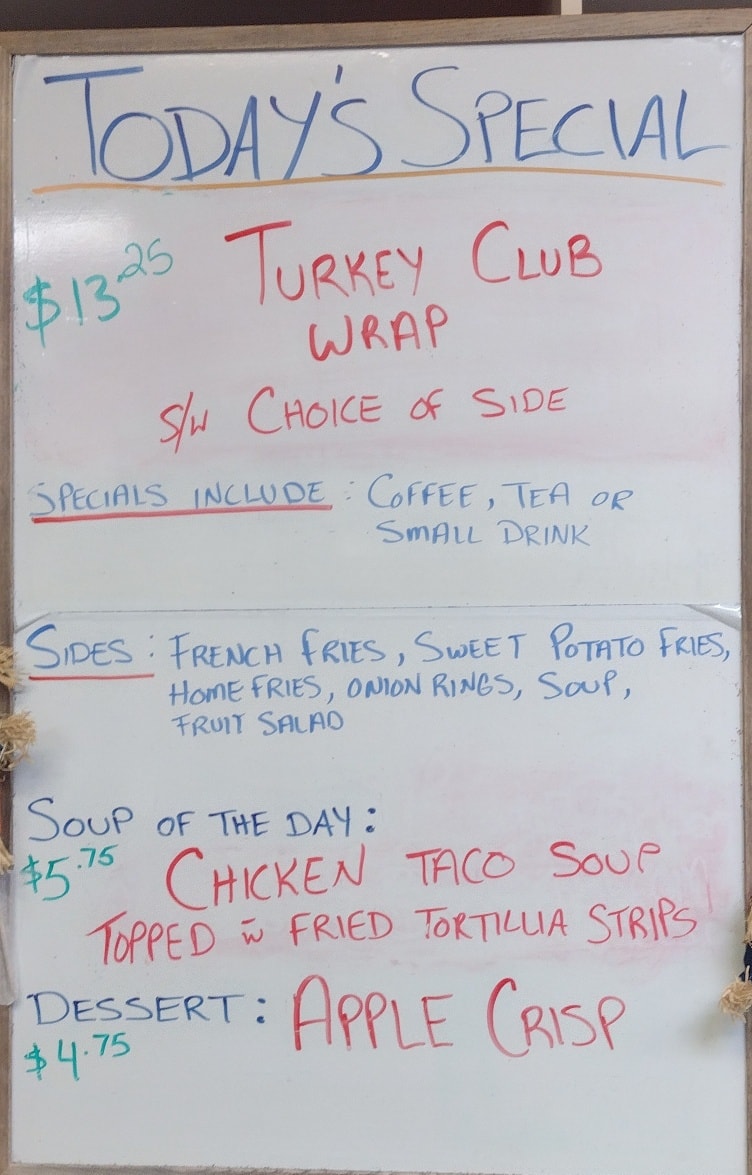 TODAY'S SPECIAL
$13.25 TURKEY CLUB
WRAP
S/W CHOICE OF SIDE
SPECIALS INCLUDE : COFFEE, TEA OR
SMALL DRINK
SIDES : FRENCH FRIES, SWEET POTATO FRIES,
HOME FRIES, ONION RINGS, SOUP,
FRUIT SALAD
SOUP OF THE DAY :
$5.75 CHICKEN TACO SOUP
TOPPED w̄ FRIED TORTILLIA STRIPS
DESSERT : APPLE CRISP
$4.75